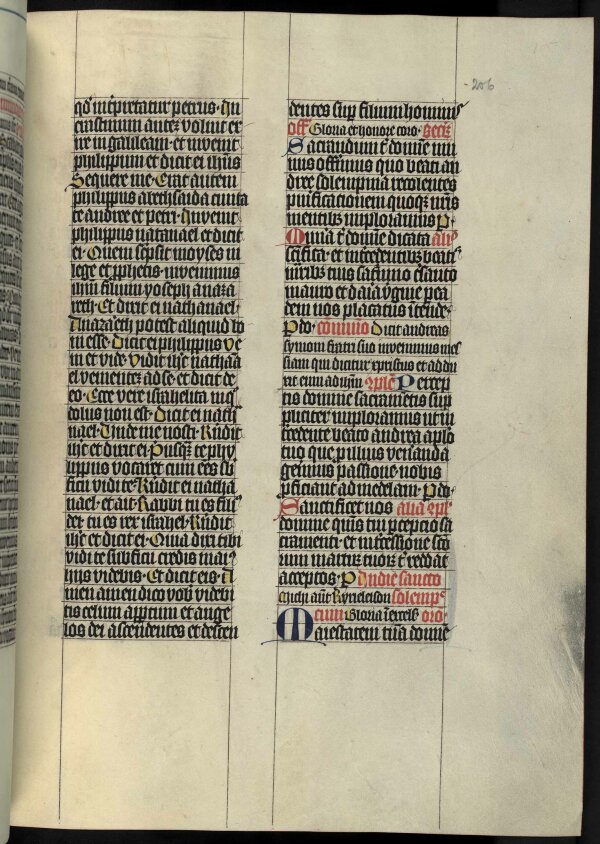 206
qd interpretatur petrus· In
crastinum autez voluit ex
ire in galileam· et invenit
philippum et dicit ei ihus
Sequere me· Erat autem
philippus a bethsaida civita
te andree et petri· Invenit
philippus natanael et dicit
ei· Quem scripsit moyses in
lege et prophetis· invenimus
ihm filium yoseph a naza
reth· Et dixit ei nathanael·
A nazareth potest aliquid bo
ni esse· Dicit ei philippus ve
ni et vide· Vidit ihc nathana
el venientez ad se· et dicit de
eo· Ecce vere israhelita in q
dolus non est· Dicit ei nath
nael· Unde me nosti· Rndit
ihc et dixit ei· Pusqz te phy
lippus vocaret cum ees sb
ficu vidi te· Rndit ei natha
nael· et ait· Rabbi tu es fili
dei tu es rex israhel· Rndit
ihc et dixit ei· Quia dixi tibi
vidi te sub ficu credis mai
hijs videbis· Et dicit eis· A
men amen dico vob videbi
tis celum apertum et ange
los dei ascendentes et descen
dentes sup filium hominis
off Gloria et honore coro· Secr
Sacrandum t domine mu
nus offerimus quo beati an
dree solempnia recolentes
purificacionem quoqz nris
mentibz imploramus P
Munera t domine dicata alia
scifica· et intercedentibz beatis
mribz tuis saturno et sancto
mauro et daria vgine pea
dem nos placatus itende·
Pdo· comunio Dicit andreas
symoni fratri suo invenimus mes
siam qui dicitur cpristus et addu
xit eum ad ihm cple Percep
tis domine sacrametis sup
pliciter imploramus ut in
tercedente beato andrea aplo
tuo que p illius veneranda
gerimus passione· nobis
pficiant ad medelam· Pdo·
Sanctificet nos alia cpl
domine quis tui pcepcio sa
cramenti· et intercessio sco
rum martirum tuorum t reddat
acceptos· P In die sancto
nichi aut Kyrieleison solemp
cum Gloria i excels oro·
Maiestatem tua domine